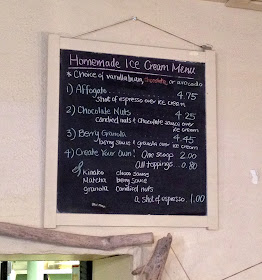 Homemade Ice Cream Menu
* Choice of vanilla bean, chocolate or avocado
1) Affogato 4.75
shot of espresso over ice cream
2) Chocolate Nuts 4.25
candied nuts & chocolate sauce over ice cream
3) Berry Granola 4.45
berry sauce & granola over ice cream
4) Create Your Own! One scoop 2.00
All toppings 0.80
Kinako choco sauce
Matcha berry sauce
granola candied nuts
a shot of espresso 1.00